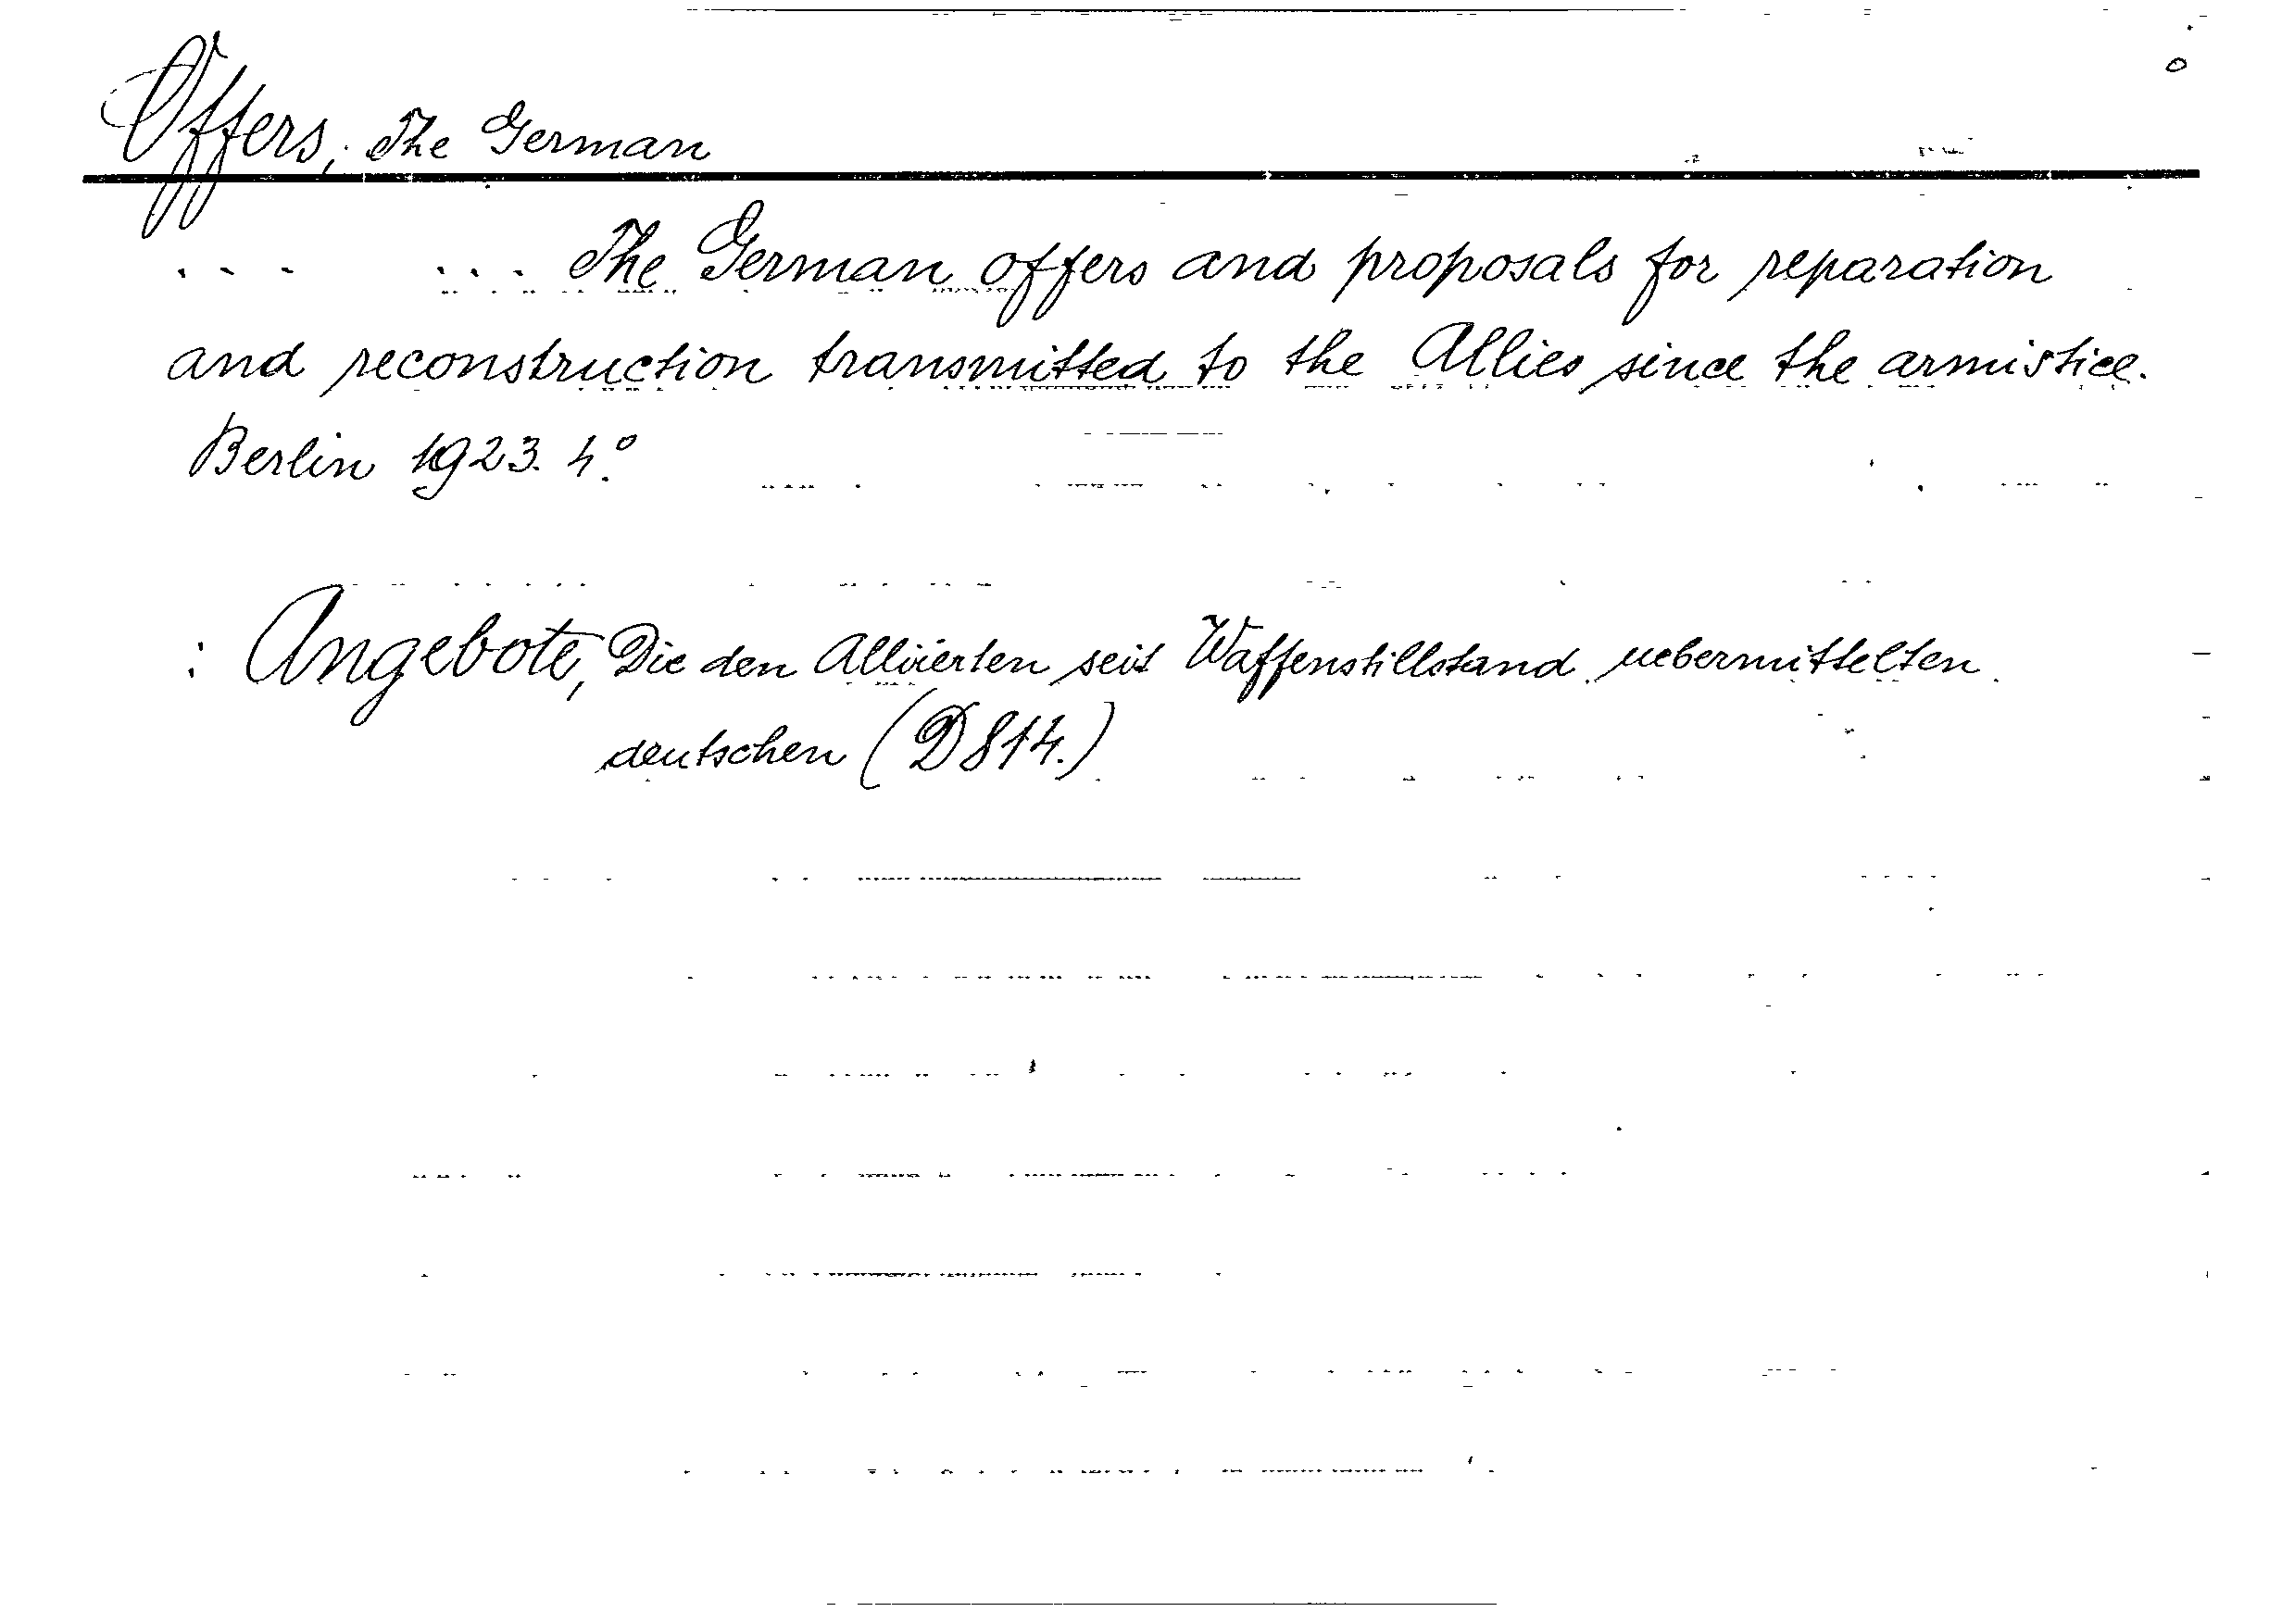 Offers, The German
... ... The German offers and proposals for reparation
and reconstruction transmitted to the Allies since the armistice.
Berlin 1923. 4°.
: Angebote, Die den Alliierten seit Waffenstillstand uebermittelten
deutschen (D 814.)